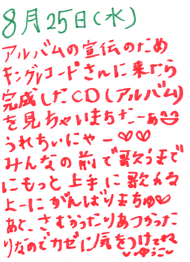 8月25日(水)
アルバムの宣伝のため
キングレコードさんに来たら
完成したCD(アルバム)
を見ちゃいまちたーぁ
うれちいにゃー♡♡
みんなの前で歌うまで
にもっと上手に歌える
よーにがんばりまちゅ♡
あと、さむかったりあつかった
りなのでカゼに気をつけてね